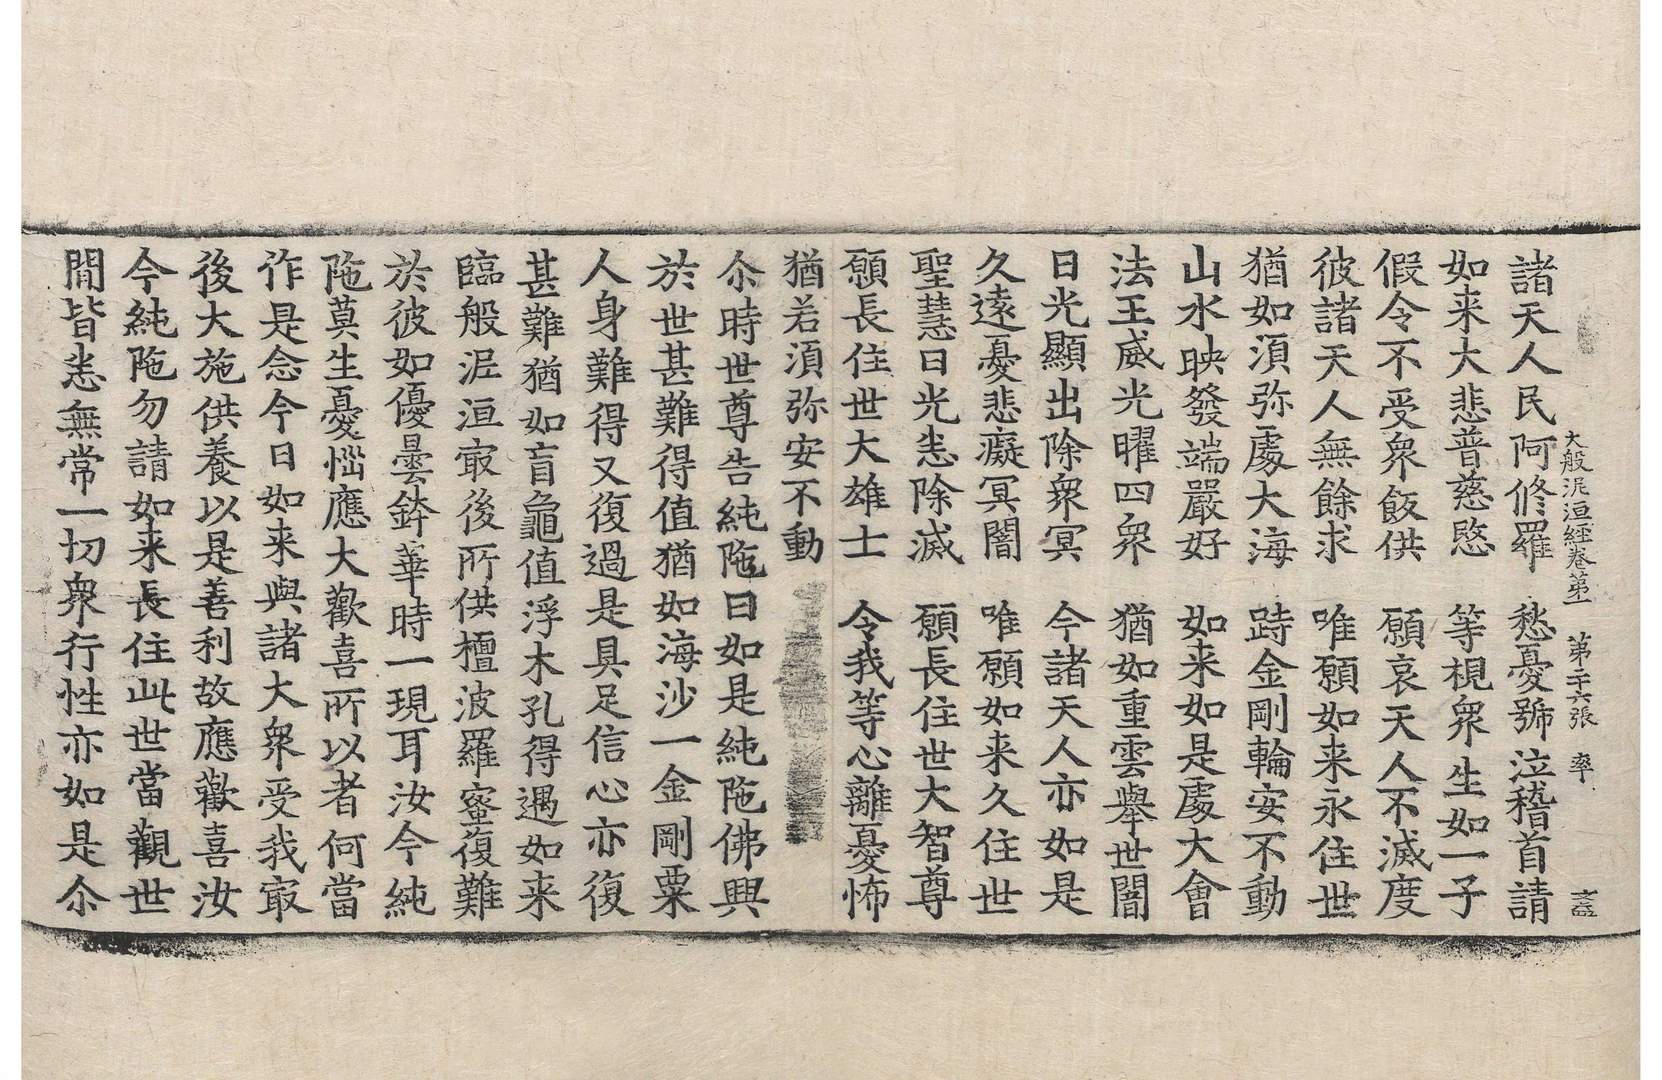 大般泥洹經卷第一 第二十六張 率
諸天人民阿脩羅 愁憂號泣稽首請
如来大悲普慈愍 等視衆生如一子
假令不受衆飯供 願哀天人不滅度
彼諸天人無餘求 唯願如来永住世
猶如湏弥處大海 跱金剛輪安不動
山水映發端嚴好 如来如是處大會
法王威光曜四衆 猶如重雲舉世闇
日光顯出除衆冥 今諸天人亦如是
久遠憂悲癡冥闇 唯願如来久住世
聖慧日光悉除滅 願長住世大智尊
願長住世大雄士 令我等心離憂怖
猶若湏弥安不動
尒時世尊告純陁曰如是純陁佛興
於世甚難得值猶如海沙一金剛粟
人身難得又復過是具足信心亦復
甚難猶如盲龜值浮木孔得遇如来
臨般泥洹㝡後所供檀波羅蜜復難
於彼如優曇鉢華時一現耳汝今純
陁莫生憂惱應大歡喜所以者何當
作是念今日如来與諸大衆受我㝡
後大施供養以是善利故應歡喜汝
今純陁勿請如来長住此世當觀世
間皆悉無常一切衆行性亦如是尒